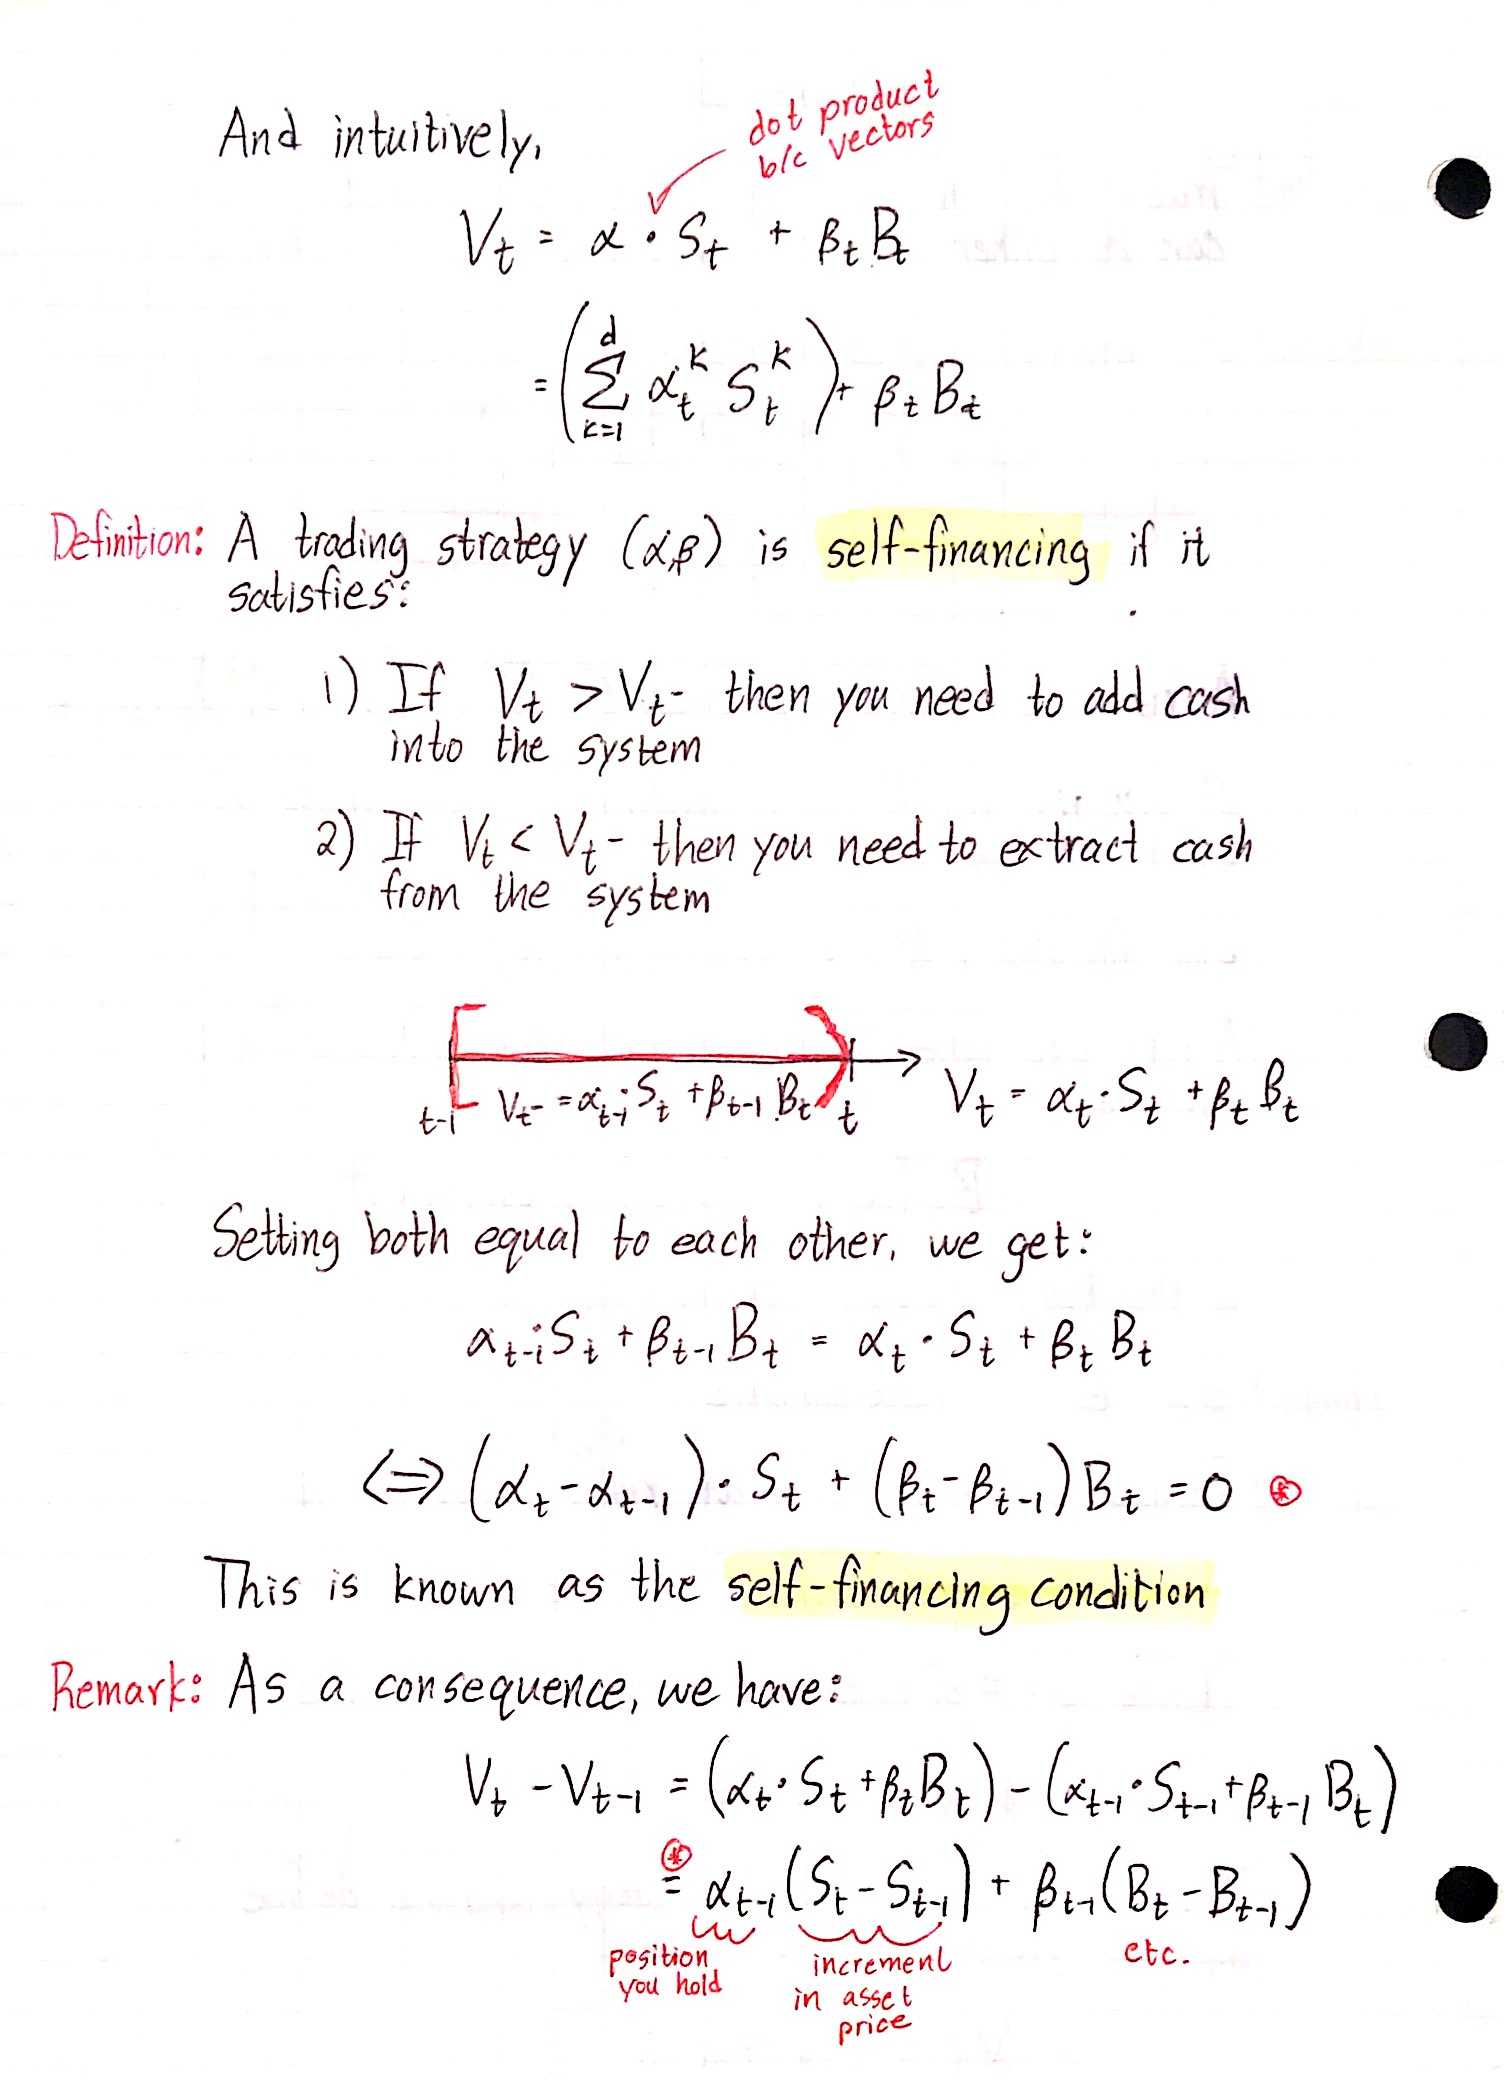 And intuitively,
dot product
b/c vectors
V_t = α · S_t + β_t B_t
= (∑_{k=1}^{d} α_t^k S_t^k) + β_t B_t
Definition: A trading strategy (α,β) is self-financing if it
satisfies:
1) If V_t > V_{t^-} then you need to add cash
into the system
2) If V_t < V_{t^-} then you need to extract cash
from the system
t-1 V_{t^-} = α_{t-1} · S_t + β_{t-1} B_t t V_t = α_t · S_t + β_t B_t
Setting both equal to each other, we get:
α_{t-1} · S_t + β_{t-1} B_t = α_t · S_t + β_t B_t
⟺ (α_t - α_{t-1}) · S_t + (β_t - β_{t-1}) B_t = 0 ⊛
This is known as the self-financing condition
Remark: As a consequence, we have:
V_t - V_{t-1} = (α_t · S_t + β_t B_t) - (α_{t-1} · S_{t-1} + β_{t-1} B_t)
⊛
= α_{t-1} (S_t - S_{t-1}) + β_{t-1} (B_t - B_{t-1})
position
you hold
increment
in asset
price
etc.